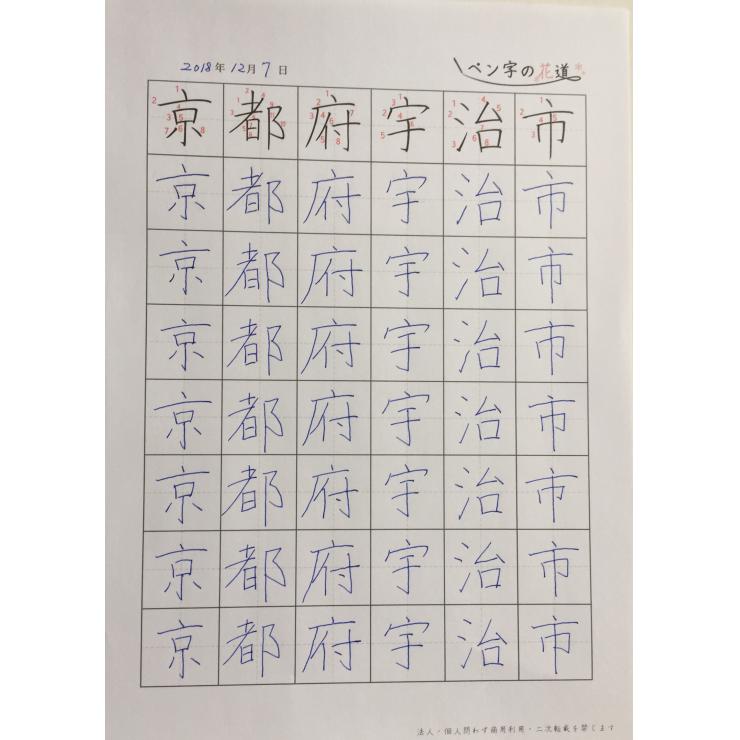 2018年12月7日
ペン字の花道
京都府宇治市
京都府宇治市
京都府宇治市
京都府宇治市
京都府宇治市
京都府宇治市
京都府宇治市
京都府宇治市
法人・個人問わず商用利用・二次転載を禁じます